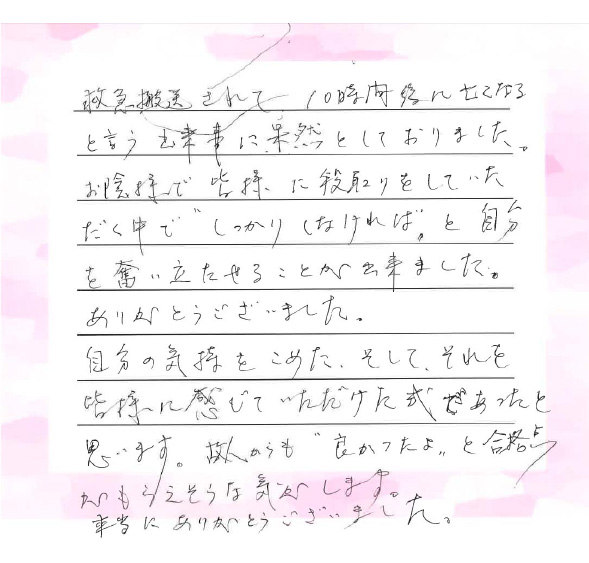 救急搬送されて、10時間後に亡くなる
と言う出来事に呆然としておりました。
お陰様で皆様に段取りをしていた
だく中で"しっかりしなければ"と自分
を奮い立たせることが出来ました。
ありがとうございました。
自分の気持をこめた、そして、それを
皆様に感じていただけた式であったと
思います。故人からも"良かったよ"と合格点
がもらえそうな気がします。
本当にありがとうございました。